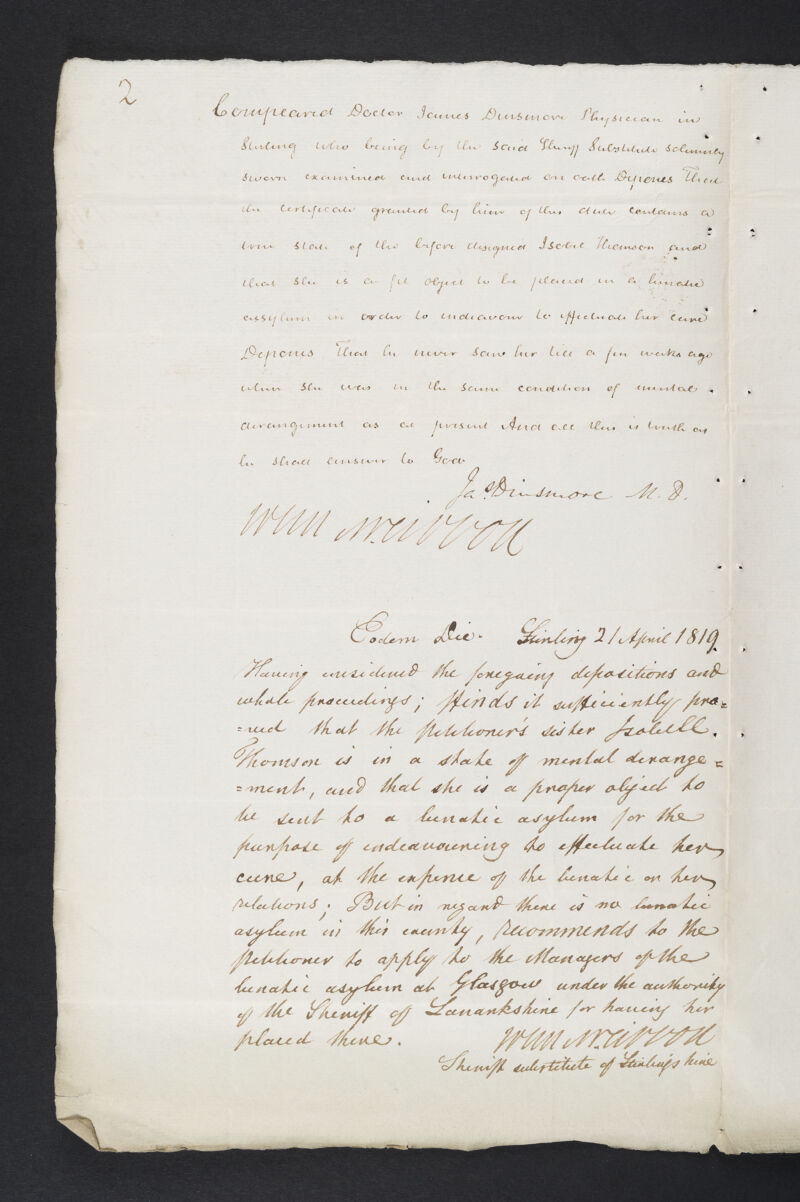 2
Compeared Doctor James Dinsmore Physician in
Stirling who being by the said Sheriff Substitute solemnly
sworn examined and interrogated on oath Depones That
the certificate granted by him of this date contains a
true state of the before designed Isobel Thomson and
that she is a fit object to be placed in a lunatic
assylum in order to indeavour to effectuate her cure
Depones That he never saw her till a few weeks ago
when she was in the same condition of mental
derangement as at present And all this is truth as
he shall answer to God
Jas. Dinsmore M. D.
Will
Eodem Die. Stirling 21 April 1819
Having considered the foregoing depositions and
whole proceedings; ffinds it sufficiently pro=
=ved that the petitioner's sister Isobell
Thomson is in a state of mental derange=
=ment, and that she is a proper object to
be sent to a lunatic asylum for the
purpose of endeavouring to effectuate her
cure, at the expense of the lunatic or her
relations; But in regard there is no lunatic
asylum in this county, recommends to the
petitioner to apply to the Managers of the
lunatic asylum at Glasgow under the authority
of the Sheriff of Lanarkshire for having her
placed there. Will
Sheriff substitute of Stirlingshire